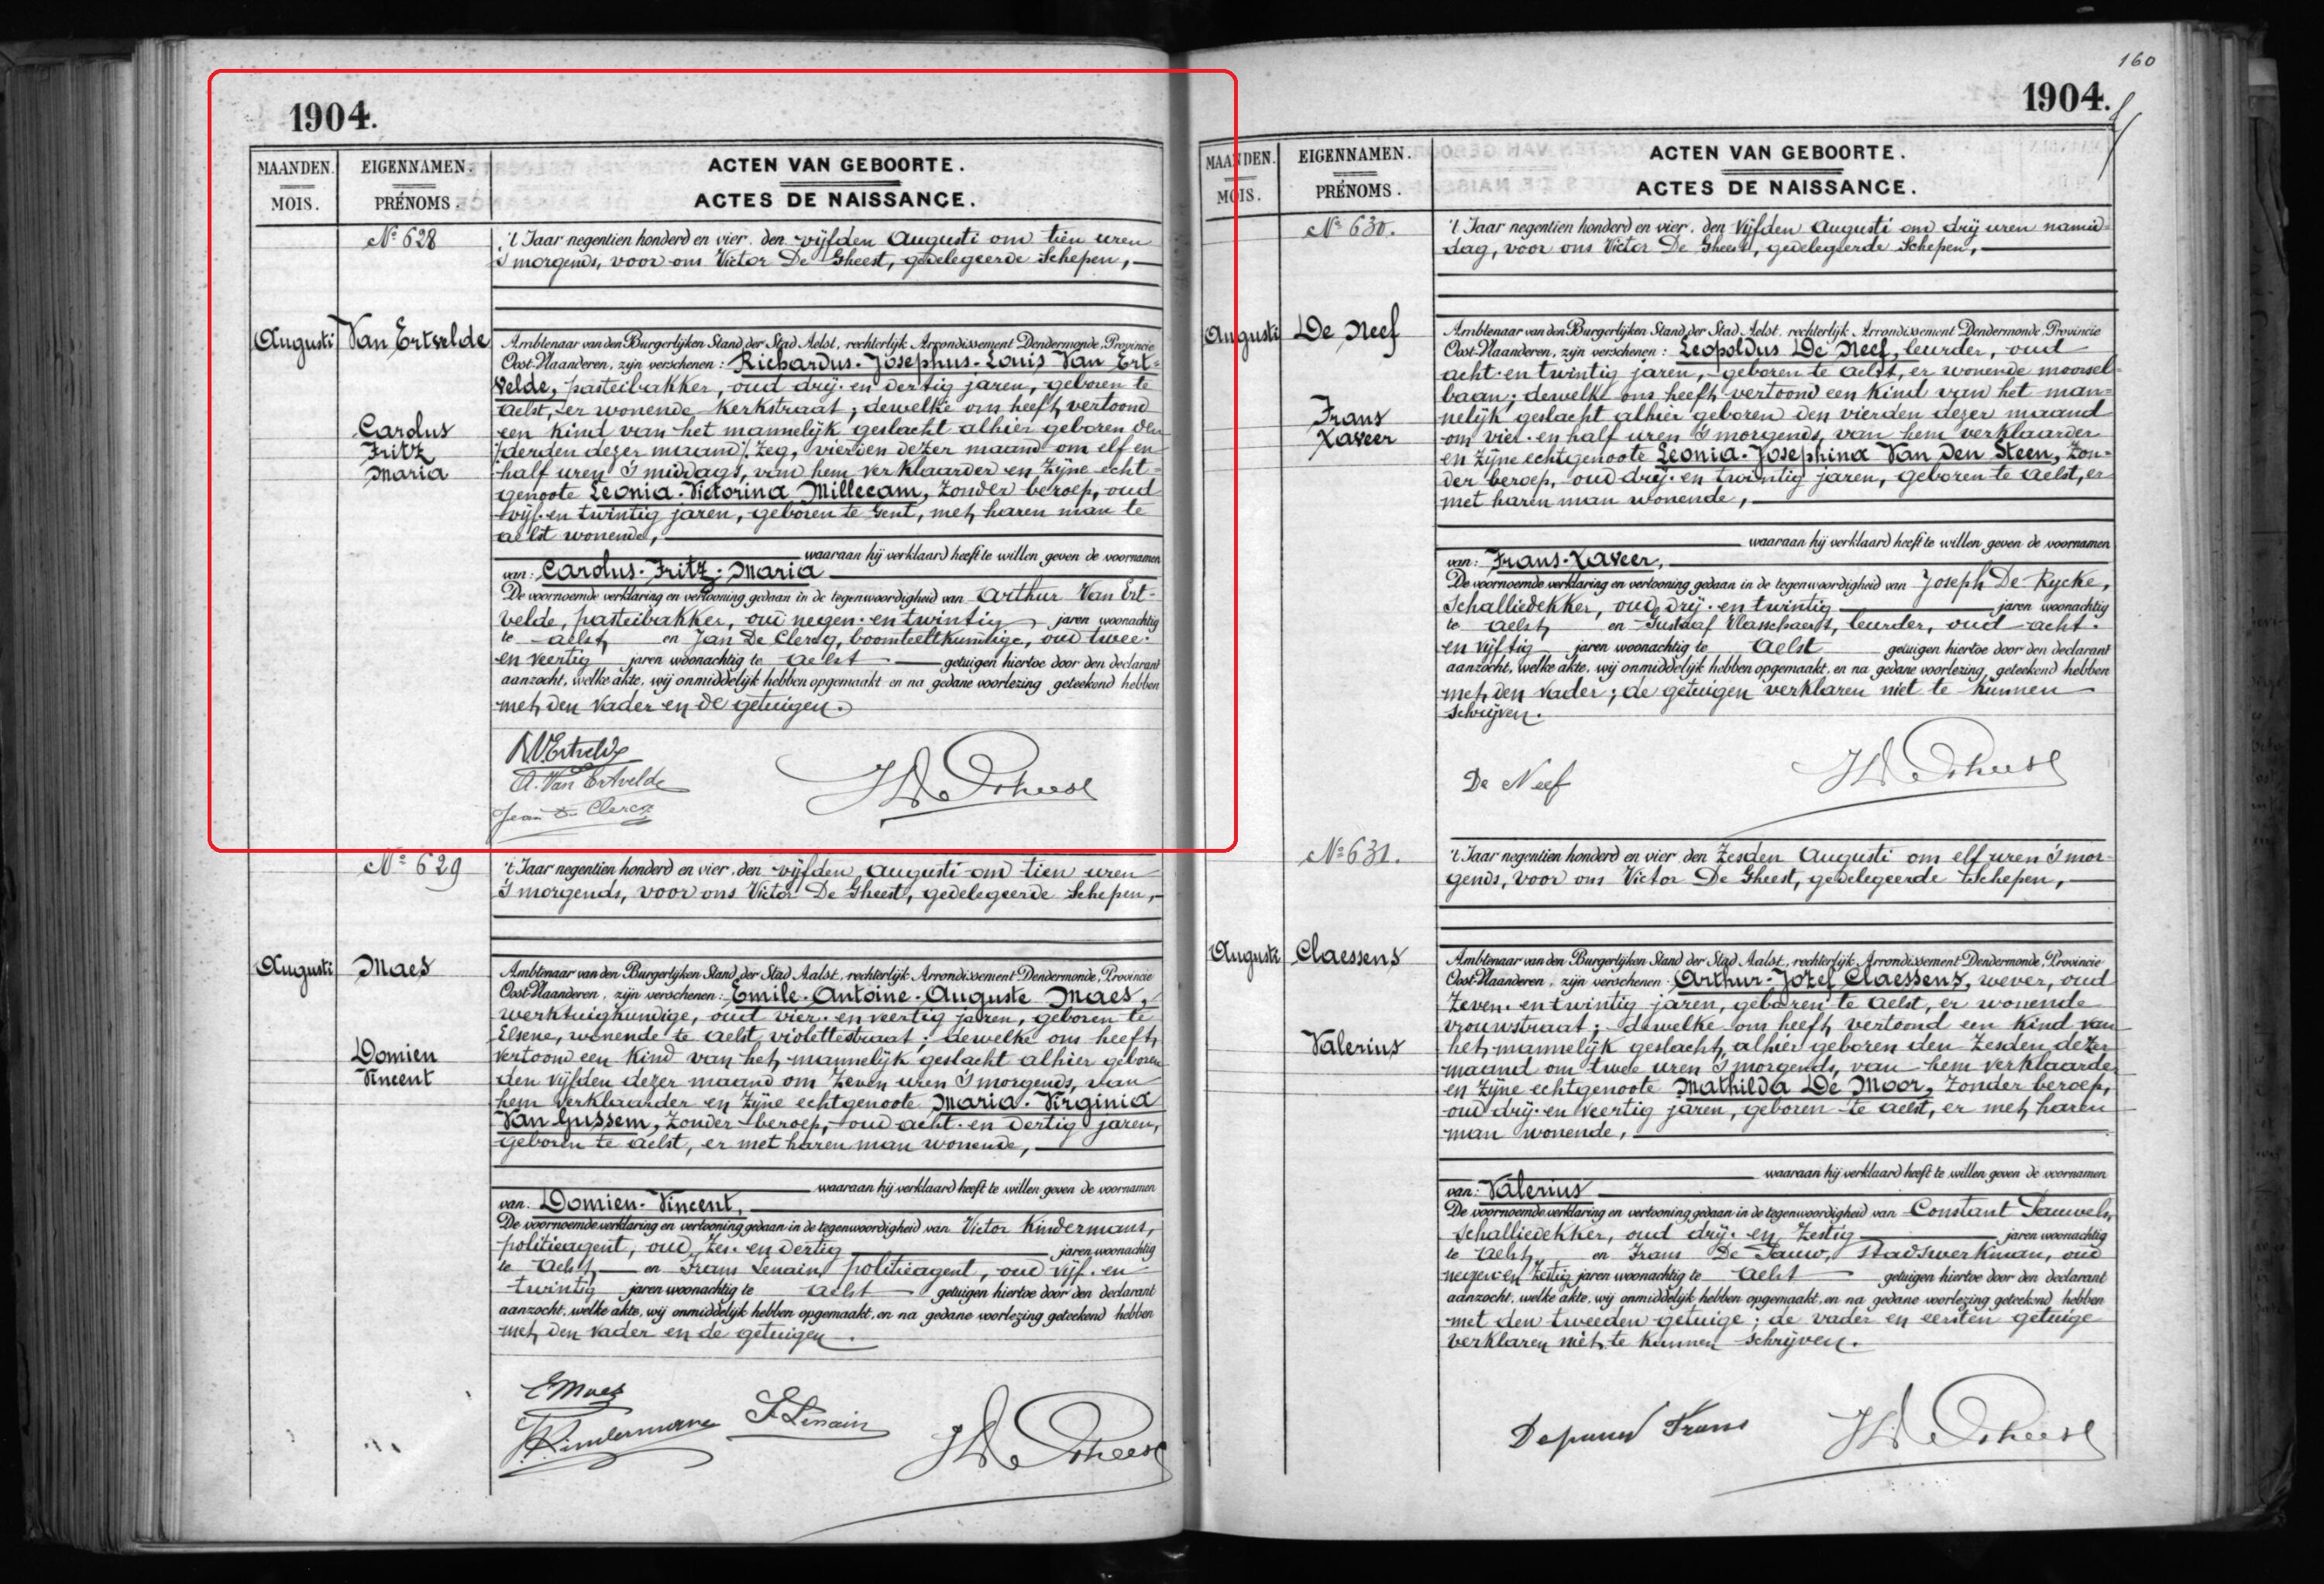 1904.
MAANDEN. EIGENNAMEN. ACTEN VAN GEBOORTE.
MOIS. PRÉNOMS. ACTES DE NAISSANCE.
No 628 't Jaar negentien honderd en vier, den vijfden Augusti om tien uren
's morgends, voor ons Victor De Gheest, gedelegeerde Schepen,
Augusti Van Ertvelde
Ambtenaar van den Burgerlijken Stand der Stad Aelst, rechterlijk Arrondissement Dendermonde, Provincie
Oost-Vlaanderen, zijn verschenen: Richardus-Josephus-Louis Van Ert-
velde, pasteibakker, oud drij-en dertig jaren, geboren te
Aelst, er wonende Kerkstraat; dewelke ons heeft vertoond
Carolus een kind van het mannelijk geslacht alhier geboren den
Fritz /derden dezer maand/ zeg, vierden dezer maand om elf en
Maria half uren 's middags, van hem verklaarder en zijne echt-
genoote Leonia-Victorina Millecam, zonder beroep, oud
vijf-en twintig jaren, geboren te Gent, met haren man te
Aelst wonende,
waaraan hij verklaard heeft te willen geven de voornamen
van: Carolus-Fritz-Maria
De voornoemde verklaring en vertooning gedaan in de tegenwoordigheid van Arthur Van Ert-
velde, pasteibakker, oud negen-en twintig jaren woonachtig
te Aelst en Jan De Clercq, boomteeltkundige, oud twee-
en veertig jaren woonachtig te Aelst getuigen hiertoe door den declarant
aanzocht, welke akte, wij onmiddelijk hebben opgemaakt en na gedane voorlezing geteekend hebben
met den vader en de getuigen.
R. VErtvelde
A. Van Ertvelde
Jean De Clercq
VDeGheest
No 629 't Jaar negentien honderd en vier, den vijfden Augusti om tien uren
's morgends, voor ons Victor De Gheest, gedelegeerde Schepen,
Augusti Maes
Ambtenaar van den Burgerlijken Stand der Stad Aalst, rechterlijk Arrondissement Dendermonde, Provincie
Oost-Vlaanderen, zijn verschenen: Emile-Antoine-Auguste Maes,
werktuigkundige, oud vier-en veertig jaren, geboren te
Elsene, wonende te Aelst violettestraat; dewelke ons heeft
Domien vertoond een kind van het mannelijk geslacht alhier geboren
Vincent den vijfden dezer maand om zeven uren 's morgends, van
hem verklaarder en zijne echtgenoote Maria-Virginia
Van Gussem, zonder beroep, oud acht-en dertig jaren,
geboren te Aelst, er met haren man wonende,
waaraan hij verklaard heeft te willen geven de voornamen
van: Domien-Vincent,
De voornoemde verklaring en vertooning gedaan in de tegenwoordigheid van Victor Kindermans,
politieagent, oud zes-en dertig jaren woonachtig
te Aelst en Frans Lenain, politieagent, oud vijf-en
twintig jaren woonachtig te Aelst getuigen hiertoe door den declarant
aanzocht, welke akte, wij onmiddelijk hebben opgemaakt, en na gedane voorlezing geteekend hebben
met den vader en de getuigen.
EMaes
V. Kindermans
F. Lenain
VDeGheest
160
1904.
MAANDEN. EIGENNAMEN. ACTEN VAN GEBOORTE.
MOIS. PRÉNOMS. ACTES DE NAISSANCE.
No 630. 't Jaar negentien honderd en vier, den vijfden Augusti om drij uren namid-
dag, voor ons Victor De Gheest, gedelegeerde Schepen,
Augusti De Neef
Ambtenaar van den Burgerlijken Stand der Stad Aelst, rechterlijk Arrondissement Dendermonde, Provincie
Oost-Vlaanderen, zijn verschenen: Leopoldus De Neef, leurder, oud
acht-en twintig jaren, geboren te Aelst, er wonende moorsel-
baan; dewelke ons heeft vertoond een kind van het man-
Frans nelijk geslacht alhier geboren den vierden dezer maand
Xaveer om vier-en half uren 's morgends, van hem verklaarder
en zijne echtgenoote Leonia-Josephina Van Den Steen, zon-
der beroep, oud drij-en twintig jaren, geboren te Aelst, er
met haren man wonende,
waaraan hij verklaard heeft te willen geven de voornamen
van: Frans-Xaveer,
De voornoemde verklaring en vertooning gedaan in de tegenwoordigheid van Joseph De Rycke,
schalliedekker, oud drij-en twintig jaren woonachtig
te Aelst en Gustaaf Vlasschaert, leurder, oud acht-
en vijftig jaren woonachtig te Aelst getuigen hiertoe door den declarant
aanzocht, welke akte, wij onmiddelijk hebben opgemaakt, en na gedane voorlezing, geteekend hebben
met den vader; de getuigen verklaren niet te kunnen
schrijven.
De Neef
VDeGheest
No 631. 't Jaar negentien honderd en vier den zesden Augusti om elf uren 's mor-
gends, voor ons Victor De Gheest, gedelegeerde Schepen,
Augusti Claessens
Ambtenaar van den Burgerlijken Stand der Stad Aalst, rechterlijk Arrondissement Dendermonde, Provincie
Oost-Vlaanderen, zijn verschenen: Arthur-Jozef Claessens, wever, oud
zeven-en twintig jaren, geboren te Aelst, er wonende
vrouwstraat; dewelke ons heeft vertoond een kind van
Valerius het mannelijk geslacht, alhier geboren den zesden dezer
maand om twee uren 's morgends, van hem verklaarder
en zijne echtgenoote Mathilda De Moor, zonder beroep,
oud drij-en veertig jaren, geboren te Aelst, er met haren
man wonende,
waaraan hij verklaard heeft te willen geven de voornamen
van: Valerius
De voornoemde verklaring en vertooning gedaan in de tegenwoordigheid van Constant Pauwels,
schalliedekker, oud drij-en zestig jaren woonachtig
te Aelst en Frans De Pauw, stadswerkman, oud
negen-en zestig jaren woonachtig te Aelst getuigen hiertoe door den declarant
aanzocht, welke akte, wij onmiddelijk hebben opgemaakt, en na gedane voorlezing geteekend hebben
met den tweeden getuige; de vader en eersten getuige
verklaren niet te kunnen schrijven.
Depauw Frans
VDeGheest